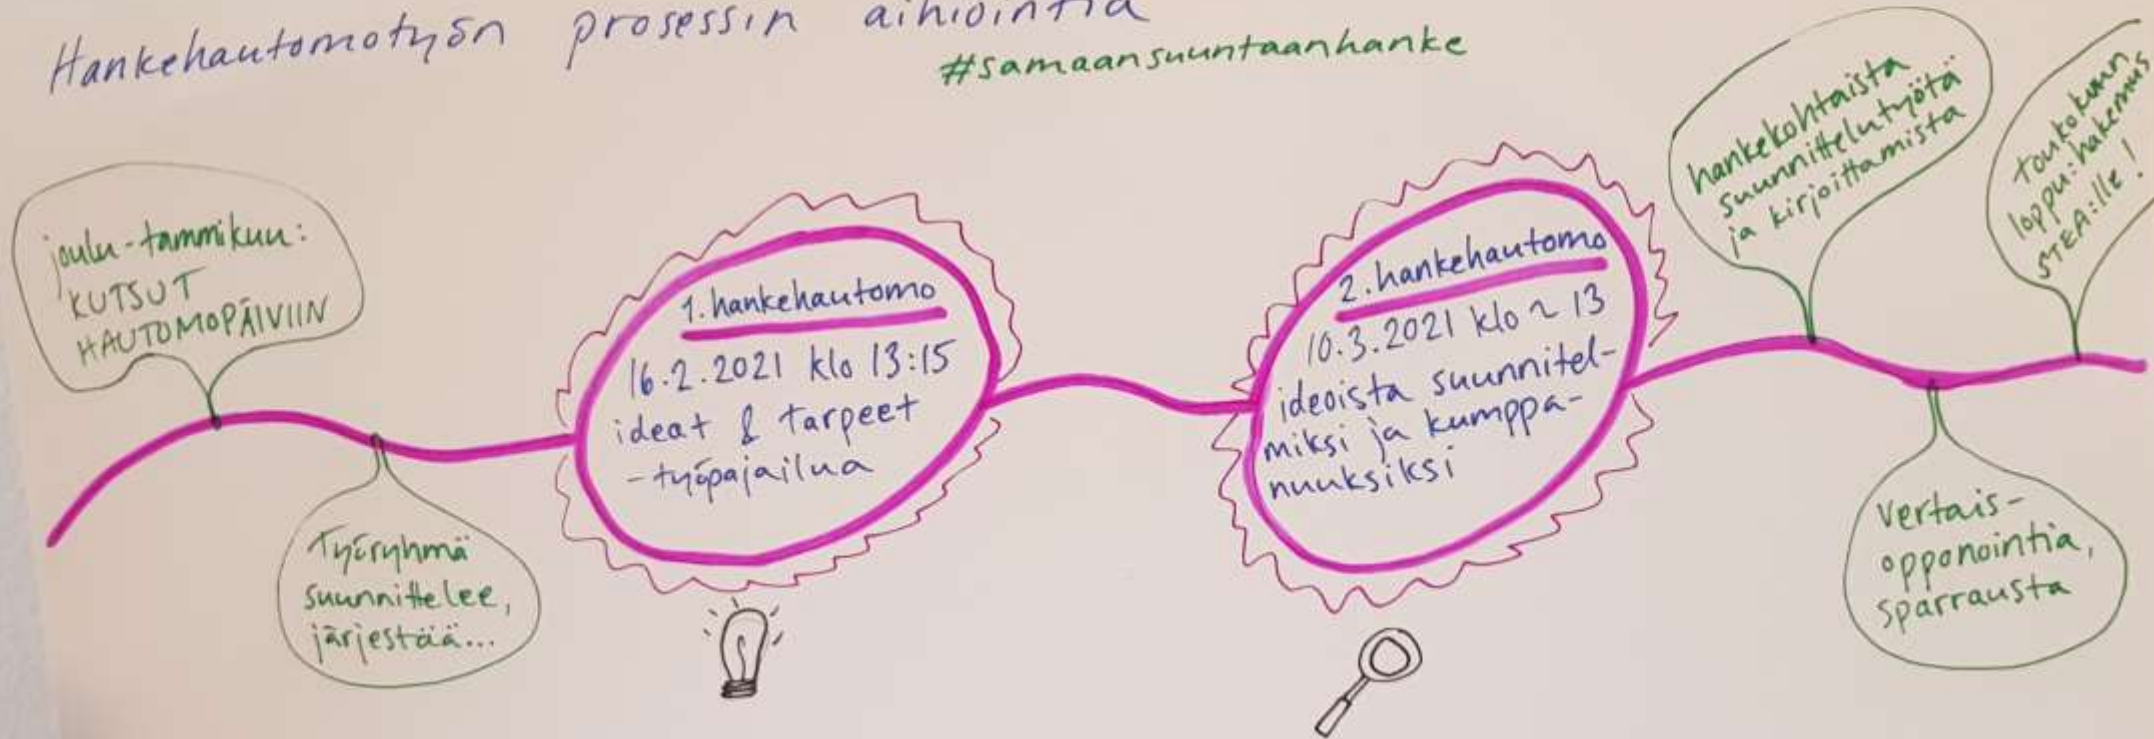 Hankehautomotyön prosessin aihiointia
#samaansuuntaanhanke
joulu-tammikuu:
KUTSUT
HAUTOMOPÄIVIIN
Työryhmä
suunnittelee,
järjestää...
1. hankehautomo
16.2.2021 klo 13:15
ideat & tarpeet
-työpajailua
2. hankehautomo
10.3.2021 klo ~ 13
ideoista suunnitel-
miksi ja kumppa-
nuuksiksi
hankekohtaista
suunnittelutyötä
ja kirjoittamista
vertais-
opponointia,
sparrausta
toukokuun
loppu: hakemus
STEA:lle!